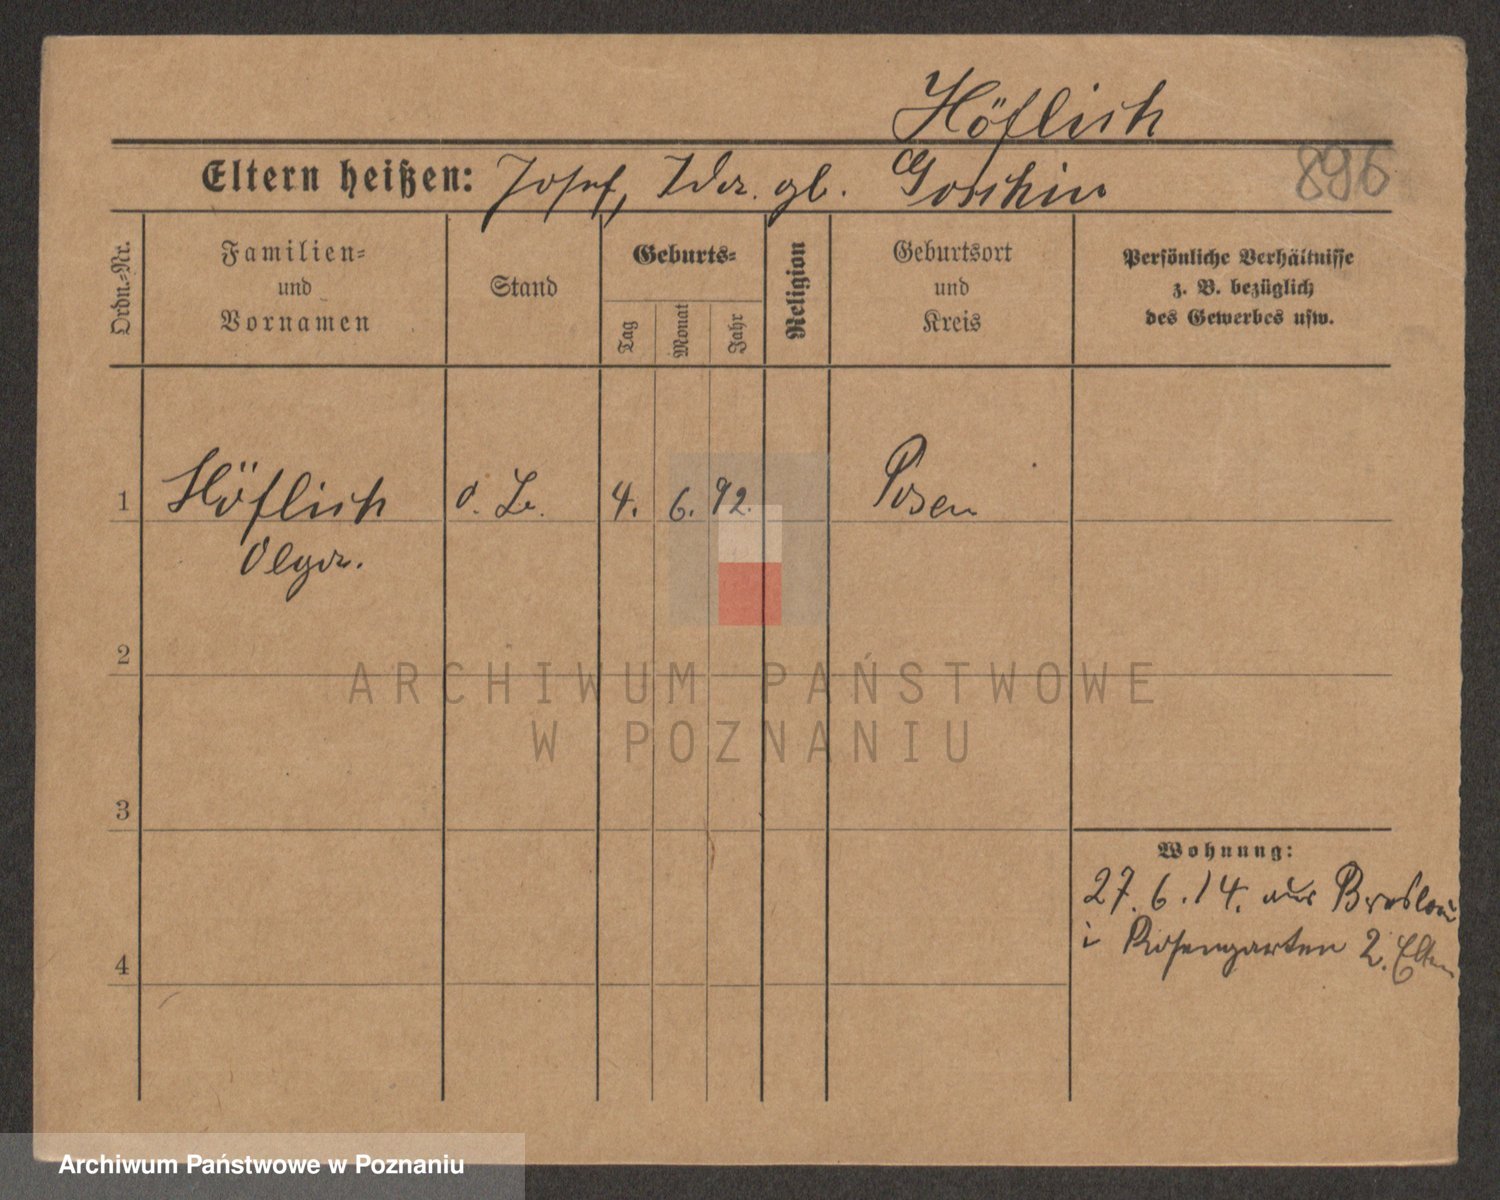 Höflich
896
Eltern heißen: Josef, Ida gb. Goschin
Ordn.-Nr.
Familien-
und
Vornamen
Stand
Geburts-
Tag
Monat
Jahr
Religion
Geburtsort
und
Kreis
Persönliche Verhältnisse
z. B. bezüglich
des Gewerbes usw.
1 Höflich o. Be. 4. 6. 92. Posen
Olga.
2
ARCHIWUM PAŃSTWOWE
W POZNANIU
3
Wohnung:
27.6.14. aus Breslau
i Rosengarten 2. Eltern
4
Archiwum Państwowe w Poznaniu